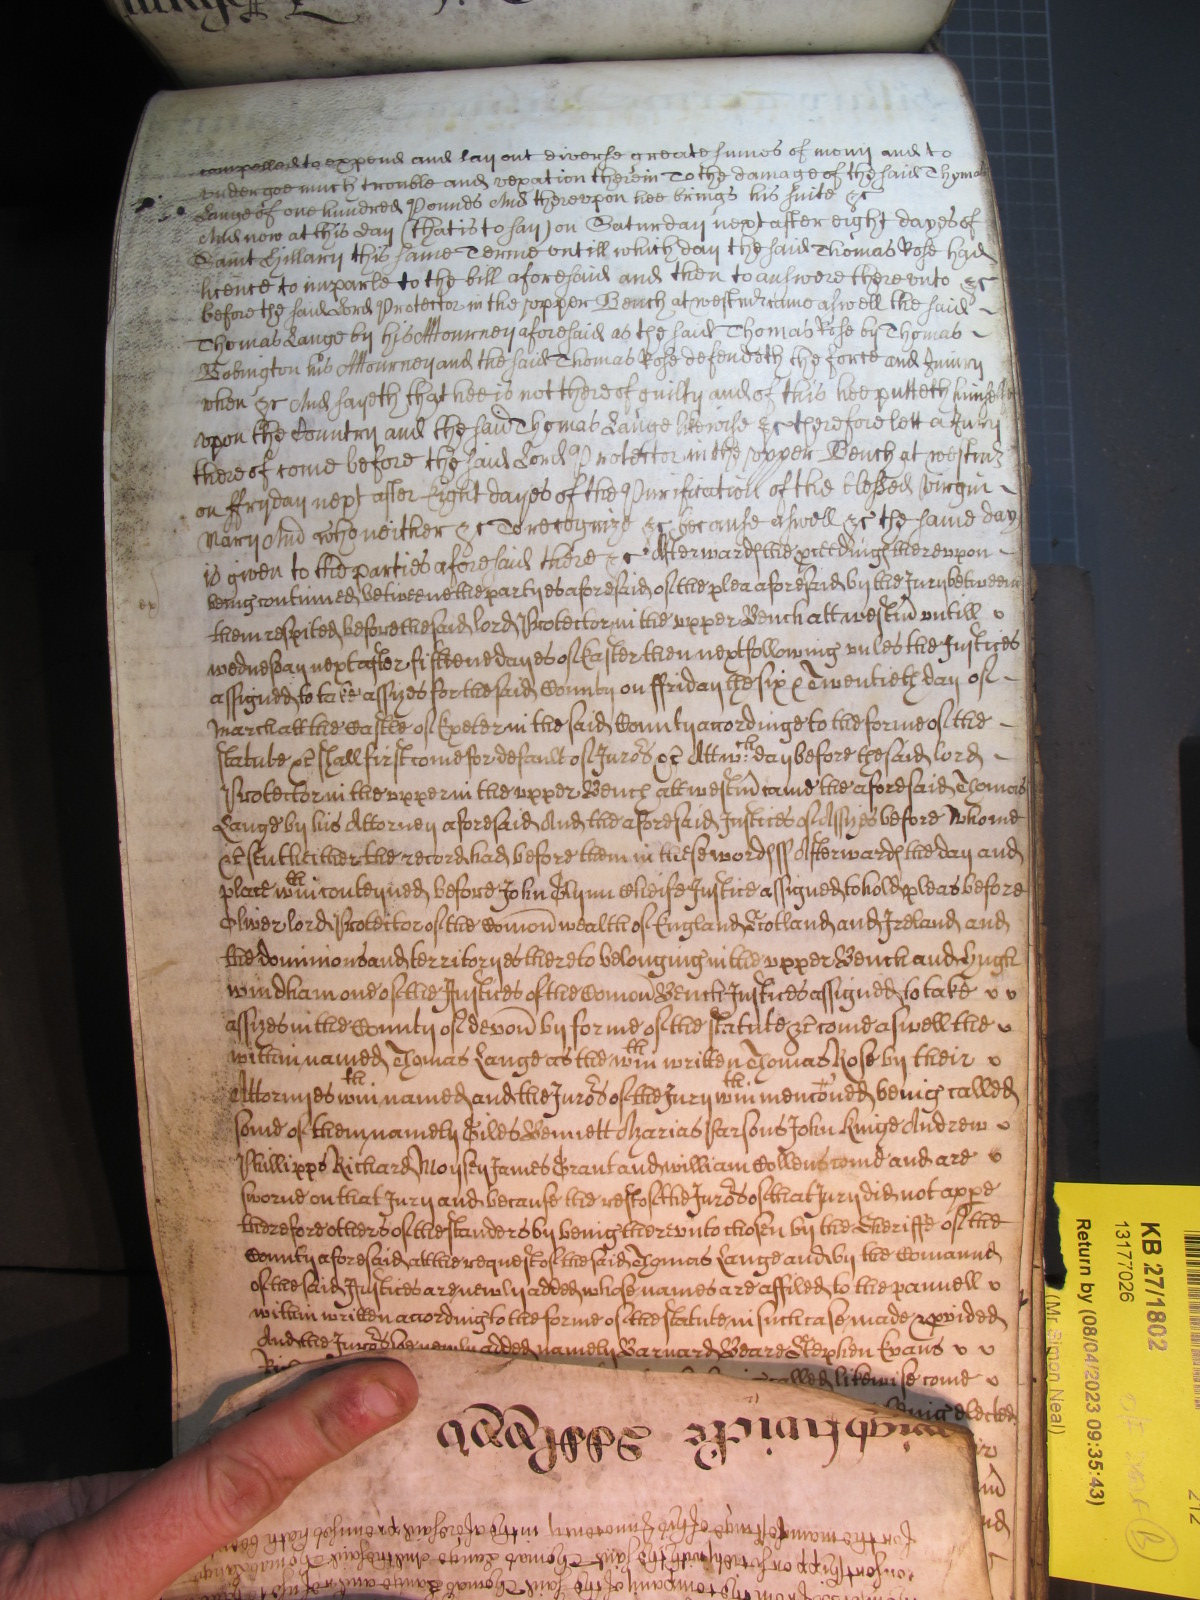 compelled to expend and lay out diverse greate sumes of mony and to
undergoe much trouble and vexation therein To the damage of the said Thomas
Lange of one hundred Pounds And thereupon hee brings his suite &c
And now at this day (that is to say) on Saturday next after eight dayes of
Saint Hillary this same Terme untill which day the said Thomas Rose had
licence to imparle to the bill aforesaid and then to answere thereunto &c
before the said Lord Protector in the upper Bench at westmr came aswell the said
Thomas Lange by his Attourney aforesaid as the said Thomas Rose by Thomas
Bobington his Attourney and the said Thomas Rose defendeth the force and Injury
when &c And sayeth that hee is not thereof guilty and of this hee putteth himselfe
upon the Country and the said Thomas Lange likewise &c therefore lett a Jury
thereof come before the said Lord Protector in the upper Bench at westmr
on ffryday next after Eight dayes of the Purification of the blessed virgin
Mary And who neither &c To recognize &c because aswell &c the same day
is given to the parties aforesaid there &c Afterwards the pceedings thereupon
being contynued betweene the partyes aforesaid of the plea aforesaid by the Jury betweene
them respited before the said lord Protector in the upper Bench att westm untill
wednesday next after fifteene dayes of Easter then next following unles the Justices
assigned to take assizes for the said County on ffriday the six & Twentieth day of
March att the Castle of Exeter in the said County accordinge to the forme of the
statute &c shall first come for default of Juro's &c Att wch day before the said lord
Protector in the upper in the upper Bench att westm came the aforesaid Thomas
Lange by his Attorney aforesaid And the aforesaid Justices of Assizes before whome
&c sent hither the record had before them in these words ss Afterwards the day and
place wthin conteyned before John Glynn Cheife Justice assigned to hold pleas before
Oliver lord Protector of the Comon wealth of England Scotland and Ireland and
the dominions and territoryes thereto belonging in the upper Bench and Hugh
windham one of the Justices of the Comon Bench Justices assigned to take
assizes in the County of devon by forme of the statute &c come aswell the
within named Thomas Lange as the wthin written Thomas Rose by their
Attornyes wthin named and the Juro's of the Jury wthin menconed being called
some of them namely Giles Bennett Azarias Parsons John Kinge Andrew
Phillipps Richard Moysey James Grant and william Collens come and are
sworne on that Jury and because the rest of the Juro's of that Jury did not appe
therefore others of the standers by being thereunto chosen by the Sheriffe of the
County aforesaid att the request of the said Thomas Lange and by the Comannd
of the said Justices are newly added whose names are affiled to the pannell
within written according to the forme of the statute in such case made & pvided
And the Juro's soe newly added namely Barnard Beare Stephen Evans
called likewise come
being elected
KB 27/1802
13177026
Return by (08/04/2023 09:35:43)
(Mr. Simon Neal)
212